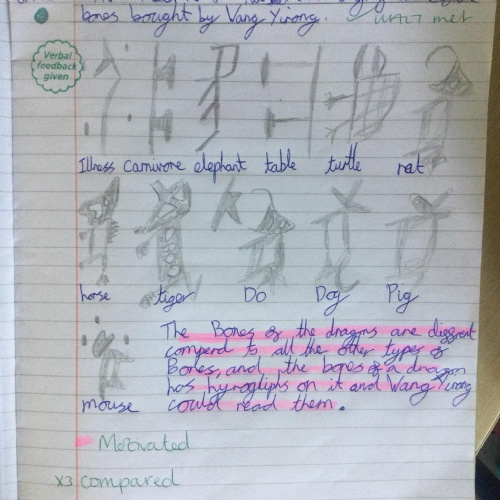 bones bought by Wang Yirong. WALT met
Verbal
feedback
given
Illness Carnivore elephant table turtle rat
horse tiger Do Dog Pig
mouse
The Bones of the dragons are different
comperd to all the other types of
Bones, and, the bones of a dragon
has hyrogliphs on it and Wang Yirong
could read them.
Motivated
x3 compared